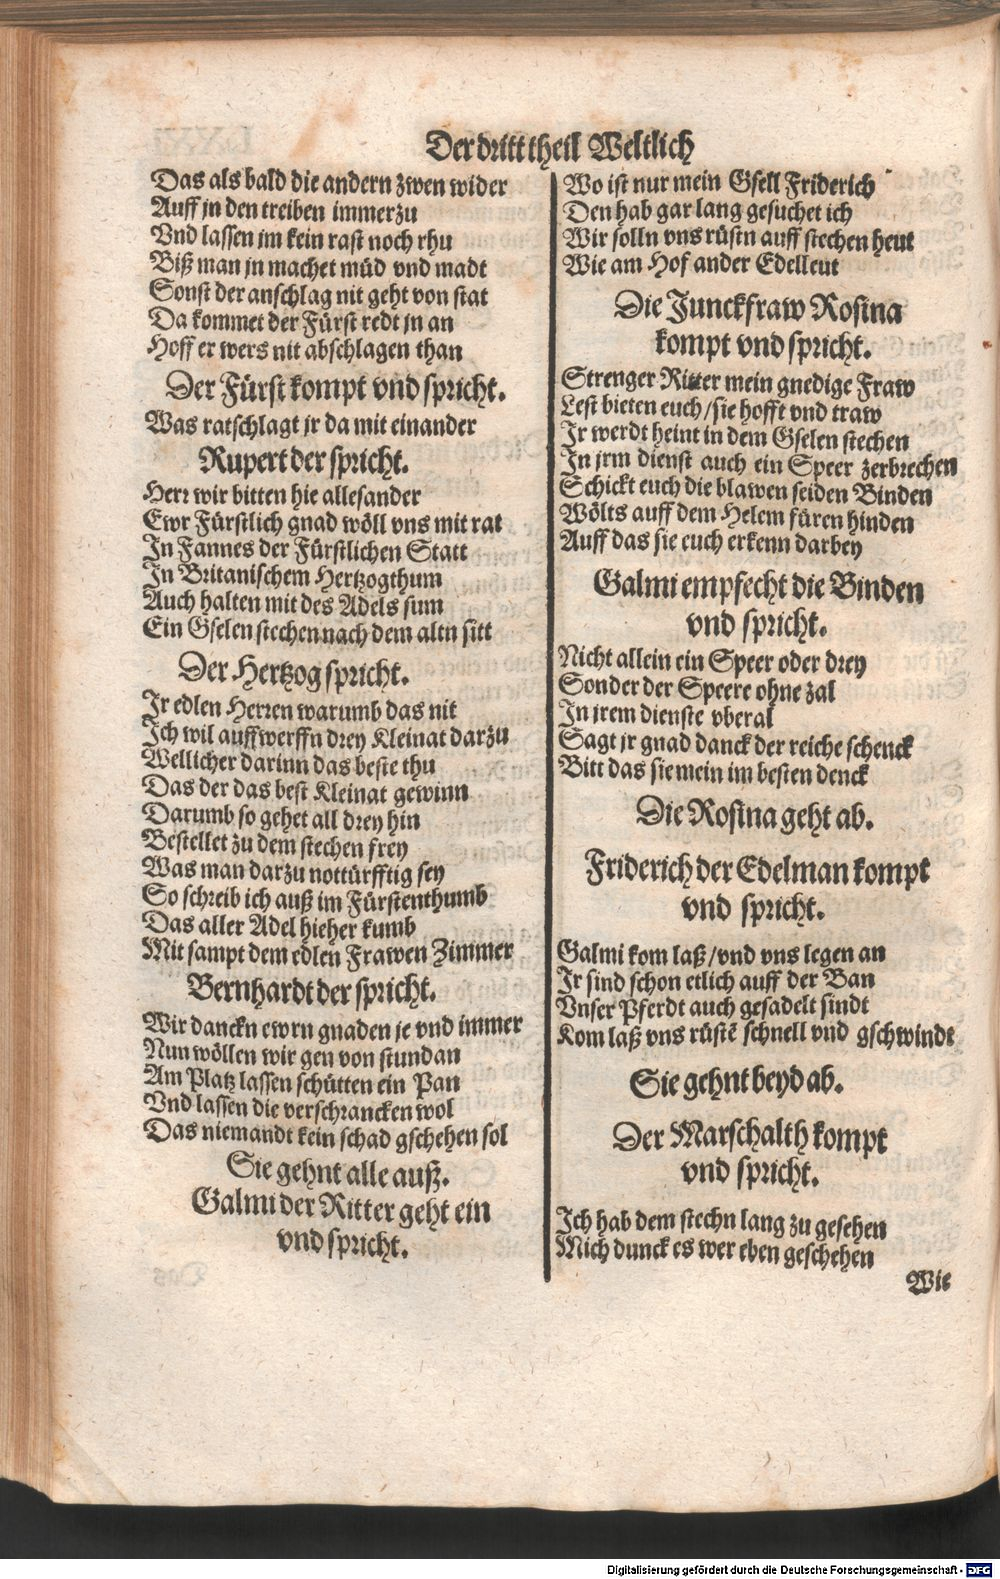 Der dritt theil Weltlich
Das als bald die andern zwen wider
Auff jn den treiben immerzu
Vnd lassen im kein rast noch rhu
Biß man jn machet müd vnd madt
Sonst der anschlag nit geht von stat
Da kommet der Fürst redt jn an
Hoff er wers nit abschlagen than
Der Fürst kompt vnd spricht.
Was ratschlagt jr da mit einander
Rupert der spricht.
Herr wir bitten hie allesander
Ewr Fürstlich gnad wöll vns mit rat
In Fannes der Fürstlichen Statt
In Britanischem Hertzogthum
Auch halten mit des Adels sum
Ein Gselen stechen nach dem altn sitt
Der Hertzog spricht.
Ir edlen Herren warumb das nit
Ich wil auffwerffn drey Kleinat darzu
Wellicher darinn das beste thu
Das der das best Kleinat gewinn
Darumb so gehet all drey hin
Bestellet zu dem stechen frey
Was man darzu nottürfftig sey
So schreib ich auß im Fürstenthumb
Das aller Adel hieher kumb
Mit sampt dem edlen Frawen Zimmer
Bernhardt der spricht.
Wir danckn ewrn gnaden je vnd immer
Nun wöllen wir gen von stundan
Am Platz lassen schütten ein Pan
Vnd lassen die verschrancken wol
Das niemandt kein schad gschehen sol
Sie gehnt alle auß.
Galmi der Ritter geht ein
vnd spricht.
Wo ist nur mein Gsell Friderich
Den hab gar lang gesuchet ich
Wir solln vns rüstn auff stechen heut
Wie am Hof ander Edelleut
Die Junckfraw Rosina
kompt vnd spricht.
Strenger Ritter mein gnedige Fraw
Lest bieten euch/sie hofft vnd traw
Ir werdt heint in dem Gselen stechen
In jrm dienst auch ein Speer zerbrechen
Schickt euch die blawen seiden Binden
Wölts auff dem Helem füren hinden
Auff das sie euch erkenn darbey
Galmi empfecht die Binden
vnd spricht.
Nicht allein ein Speer oder drey
Sonder der Speere ohne zal
In jrem dienste vberal
Sagt jr gnad danck der reiche schenck
Bitt das sie mein im besten denck
Die Rosina geht ab.
Friderich der Edelman kompt
vnd spricht.
Galmi kom laß/vnd vns legen an
Ir sind schon etlich auff der Ban
Vnser Pferdt auch gesadelt sindt
Kom laß vns rüstē schnell vnd gschwindt
Sie gehnt beyd ab.
Der Marschalth kompt
vnd spricht.
Ich hab dem stechn lang zu gesehen
Mich dunck es wer eben geschehen
Wie
Digitalisierung gefördert durch die Deutsche Forschungsgemeinschaft - DFG